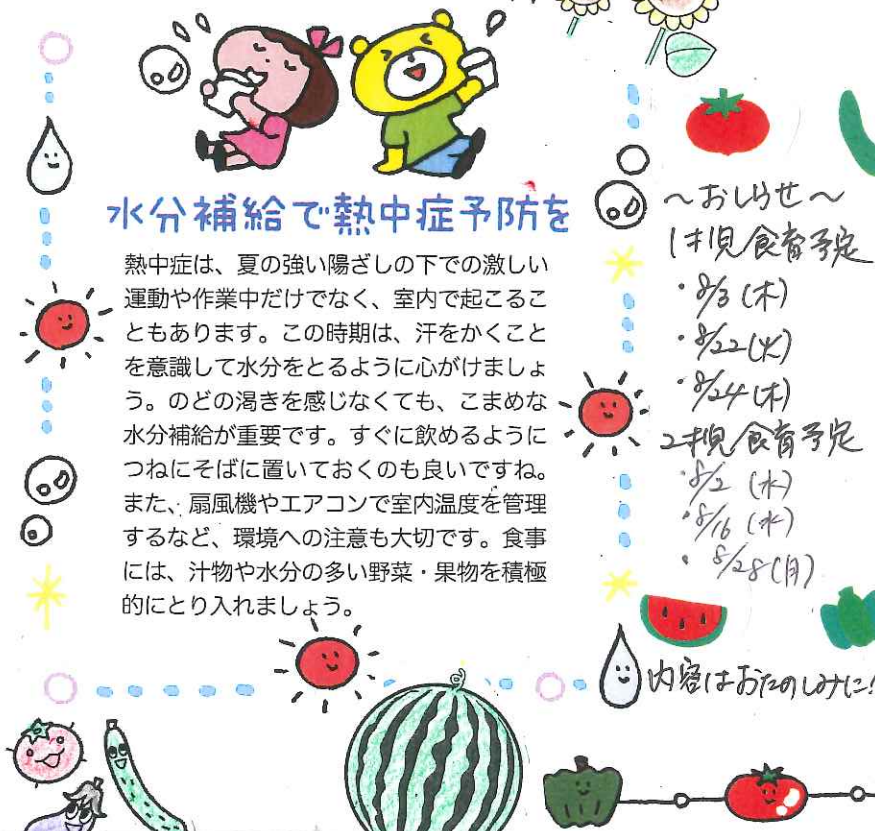 水分補給で熱中症予防を
熱中症は、夏の強い陽ざしの下での激しい
運動や作業中だけでなく、室内で起こるこ
ともあります。この時期は、汗をかくこと
を意識して水分をとるように心がけましょ
う。のどの渇きを感じなくても、こまめな
水分補給が重要です。すぐに飲めるように
つねにそばに置いておくのも良いですね。
また、扇風機やエアコンで室内温度を管理
するなど、環境への注意も大切です。食事
には、汁物や水分の多い野菜・果物を積極
的にとり入れましょう。
～おしらせ～
1才児食育予定
・8/3(木)
・8/22(火)
・8/24(木)
2才児食育予定
・8/2(水)
・8/16(水)
・8/28(月)
内容はおたのしみに!